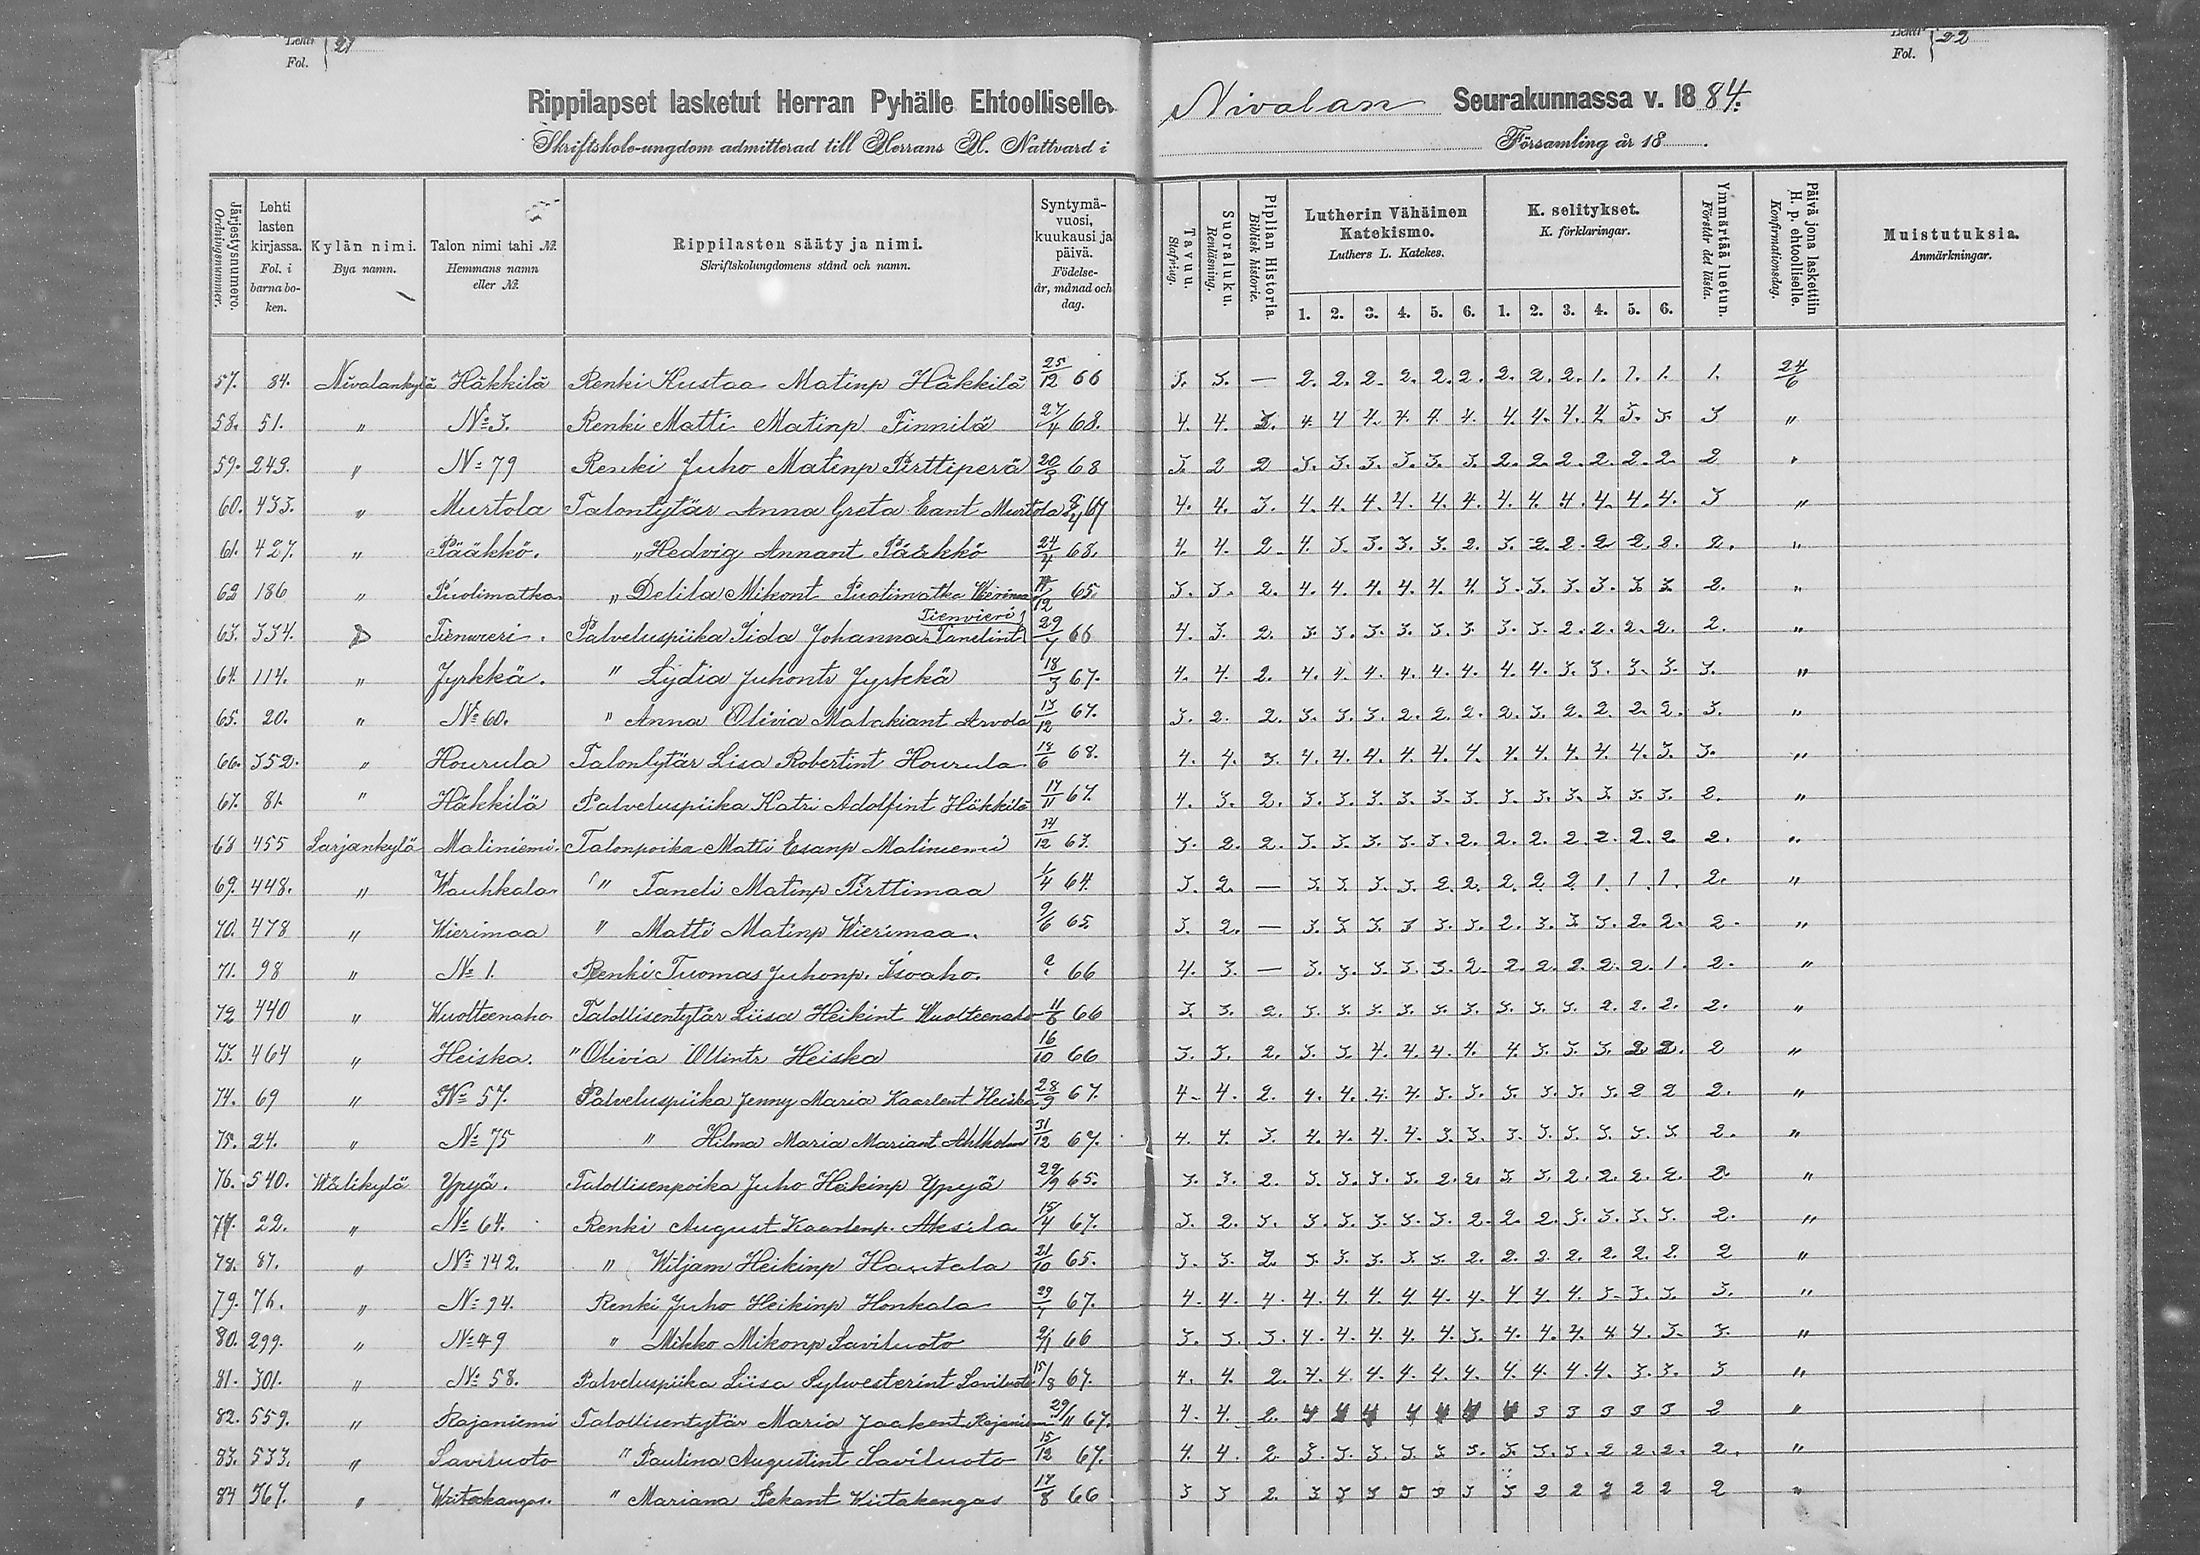 Lehti Fol. } 21
Lehti Fol. } 22
Rippilapset lasketut Herran Pyhälle Ehtoolliselle Nivalan Seurakunnassa v. 1884.
Skriftskole-ungdom admitterad till Herrans H. Nattvard i Församling år 18
Järjestysnumero. Ordningsnummer.
Lehti lasten kirjassa. Fol. i barnaboken.
Kylän nimi. Bya namn.
Talon nimi tahi №. Hemmans namn eller №.
Rippilasten sääty ja nimi. Skriftskolungdomens stånd och namn.
Syntymävuosi, kuukausi ja päivä. Födelseår, månad och dag.
Tavuu. Stafning.
Suoraluku. Renläsning.
Piplian Historia. Biblisk historie.
Lutherin Vähäinen Katekismo. Luthers L. Katekes.
K. selitykset. K. förklaringar.
Ymmärtää luetun. Förstår det lästa.
Päivä jona laskettiin H. p. ehtoolliselle. Konfirmationsdag.
Muistutuksia. Anmärkningar.
1. 2. 3. 4. 5. 6. 1. 2. 3. 4. 5. 6.
57. 84. Nivalankylä Häkkilä Renki Kustaa Matinp Häkkilä 25/12 66 3. 3. — 2. 2. 2. 2. 2. 2. 2. 2. 2. 1. 1. 1. 1. 24/6
58. 51. " № 3. Renki Matti Matinp Finnilä 27/4 68. 4. 4. 3. 4. 4 4. 4. 4 4. 4. 4. 4. 4 3. 3. 3 "
59. 243. " № 79 Renki Juho Matinp Pirttiperä 20/3 68 3. 2 2 3. 3. 3. 3. 3. 3. 2. 2. 2. 2. 2. 2. 2 "
60. 433. " Murtola Talontytär Anna Greta Eant Murtola 67 4. 4. 3. 4. 4. 4. 4. 4. 4. 4. 4. 4. 4. 4. 4. 3 "
61. 427. " Pääkkö. " Hedvig Annant Pääkkö 24/4 68. 4. 4. 2. 4. 3. 3. 3. 3. 2. 3. 2. 2. 2 2. 2. 2. "
62 186 " Puolimatka " Delila Mikont Puolimatka 65. 3. 3. 2. 4. 4. 4. 4. 4. 4. 3. 3. 3. 3. 3. 3. 2. "
63. 334. " Tienvieri. Palveluspiika Iida Johanna Tanelint Tienvieri 29/1 66 4. 3. 2. 3. 3. 3. 3. 3. 3. 3. 3. 2. 2. 2. 2. 2. "
64. 114. " Jyrkkä. " Lydia Juhontr Jyrkkä 18/3 67. 4. 4. 2. 4. 4. 4. 4. 4. 4. 4. 4. 3. 3. 3. 3. 3. "
65. 20. " № 60. " Anna Olivia Malakiant Arvola 13/12 67. 3. 2. 2. 3. 3. 3. 2. 2. 2. 2. 3. 2. 2. 2. 2. 3. "
66. 352. " Hourula Talontytär Lisa Robertint Hourula 18/6 68. 4. 4. 3. 4. 4. 4. 4. 4. 4. 4. 4. 4. 4. 4. 3. 3. "
67. 81. " Häkkilä Palveluspiika Katri Adolfint Häkkilä 17/11 67. 4. 3. 2. 3. 3. 3. 3. 3. 3. 3. 3. 3. 3. 3. 3. 2. "
68 455 Sarjankylä Maliniemi. Talonpoika Matti Esanp Maliniemi 14/12 67. 3. 2. 2. 3. 3. 3. 3. 3. 2. 2. 2. 2. 2. 2. 2 2. "
69. 448. " Wauhkala " Taneli Matinp Pirttimaa 1/4 64. 3. 2. — 3. 3. 3. 3. 2. 2. 2. 2. 2 1. 1. 1. 2. "
70. 478 " Wierimaa " Matti Matinp Wierimaa. 9/6 65 3. 2. — 3. 3. 3. 3 3. 3. 2. 3. 3. 3. 2. 2. 2. "
71. 98 " № 1. Renki Tuomas Juhonp. Isoaho. 66 4. 3. — 3. 3. 3. 3. 3. 2. 2. 2. 2. 2. 2. 1. 2. "
72 440 " Wuolteenaho Talollisentytär Liisa Heikint Wuolteenaho 11/6 66 3. 3. 2. 3. 3. 3. 3. 3. 3. 3. 3. 3. 2. 2. 2. 2. "
73. 464 " Heiska. " Olivia Ollintr Heiska 16/10 66 3. 3. 2. 3. 3. 4. 4. 4. 4. 4. 3. 3. 3. 2. 2. 2 "
74. 69 " № 57. Palveluspiika Jenny Maria Kaarlent Heiska 28/9 67. 4. 4. 2. 4. 4. 4. 4. 3. 3. 3. 3. 3. 3. 2 2 2. "
75. 24. " № 75 " Hilma Maria Mariant Ahlholm 31/12 67. 4. 4. 3. 4. 4. 4. 4. 3. 3. 3. 3. 3. 3. 3. 3. 2. "
76. 540. Wälikylä Ypyä. Talollisenpoika Juho Heikinp Ypyä 29/9 65. 3. 3. 2. 3. 3. 3. 3. 2. 2. 3. 3. 2. 2. 2. 2. 2. "
77. 22. " № 64. Renki August Kaarlenp. Aksila 15/4 67. 3. 2. 3. 3. 3. 3. 3. 3. 2. 2. 2. 3. 3. 3. 3. 2. "
78. 87. " № 142. " Wiljam Heikinp Hautala 21/10 65. 3. 3. 2. 3. 3. 3. 3. 3. 2. 2. 2. 2. 2. 2. 2. 2 "
79. 76. " № 94. Renki Juho Heikinp Honkala 29/1 67. 4. 4. 4. 4. 4. 4. 4. 4. 4. 4 4. 4. 3. 3. 3. 3. "
80. 299. " № 49 " Mikko Mikonp Saviluoto 66 3. 3. 3. 4. 4. 4. 4. 4. 3. 4. 4. 4. 4. 4. 3. 3. "
81. 301. " № 58. Palveluspiika Liisa Sylwesterint Saviluoto 15/8 67. 4. 4. 2. 4. 4. 4. 4. 4. 4. 4. 4. 4. 4. 3. 3. 3 "
82. 559. " Rajaniemi Talollisentytär Maria Jaakont Rajaniemi 29/11 67. 4. 4. 2. 4 4 4 4 4 4 4 3 3 3 3 3 2 "
83. 533. " Saviluoto " Paulina Augustint Saviluoto 15/12 67. 4. 4. 2. 3. 3. 3. 3. 3. 3. 3. 3. 3. 2. 2. 2. 2. "
84 567. " Wiitakangas. " Mariana Pekant Wiitakangas 17/8 66. 3 3 2. 3 3 3 3 3 3 3 2 2 2 2 2 2 "